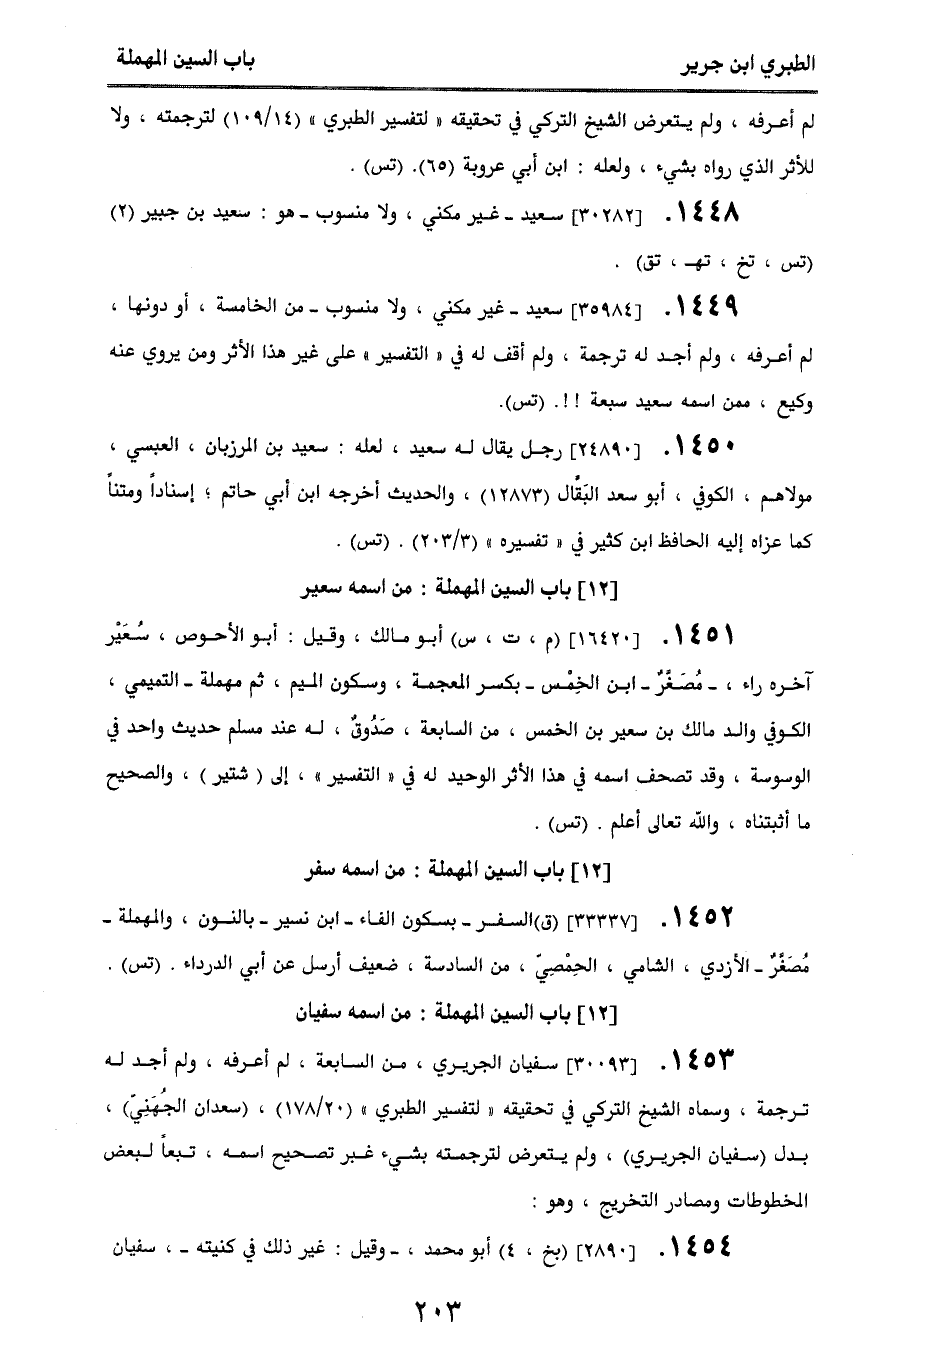 الطبري ابن جرير
باب السين المهملة
لم أعرفه ، ولم يتعرض الشيخ التركي في تحقيقه « لتفسير الطبري » (١٠٩/١٤) لترجمته ، ولا
للأثر الذي رواه بشيء ، ولعله : ابن أبي عروبة (٦٥). (تس) .
١٤٤٨. [٣٠٢٨٢] سعيد ـ غير مكني ، ولا منسوب ـ هو : سعيد بن جبير (٢)
(تس ، تخ ، تهـ ، تق) .
١٤٤٩. [٣٥٩٨٤] سعيد ـ غير مكني ، ولا منسوب ـ من الخامسة ، أو دونها ،
لم أعرفه ، ولم أجد له ترجمة ، ولم أقف له في « التفسير » على غير هذا الأثر ومن يروي عنه
وكيع ، ممن اسمه سعيد سبعة !!. (تس).
١٤٥٠. [٢٤٨٩٠] رجل يقال له سعيد ، لعله : سعيد بن المرزبان ، العبسي ،
مولاهم ، الكوفي ، أبو سعد البَقَّال (١٢٨٧٣) ، والحديث أخرجه ابن أبي حاتم ؛ إسناداً ومتناً
كما عزاه إليه الحافظ ابن كثير في « تفسيره » (٢٠٣/٣) . (تس) .
[١٢] باب السين المهملة : من اسمه سعير
١٤٥١. [١٦٤٢٠] (م ، ت ، س) أبو مالك ، وقيل : أبو الأحوص ، سُعَيْر
آخره راء ، ـ مُصَغَّرٌ ـ ابن الخِمْس ـ بكسر المعجمة ، وسكون الميم ، ثم مهملة ـ التميمي ،
الكوفي والد مالك بن سعير بن الخمس ، من السابعة ، صَدُوقٌ ، له عند مسلم حديث واحد في
الوسوسة ، وقد تصحف اسمه في هذا الأثر الوحيد له في « التفسير » ، إلى ( شتير ) ، والصحيح
ما أثبتناه ، والله تعالى أعلم . (تس) .
[١٢] باب السين المهملة : من اسمه سفر
١٤٥٢. [٣٣٣٣٧] (ق)السفر ـ بسكون الفاء ـ ابن نسير ـ بالنون ، والمهملة ـ
مُصَغَّرٌ ـ الأزدي ، الشامي ، الحِمْصِيّ ، من السادسة ، ضعيف أرسل عن أبي الدرداء . (تس) .
[١٢] باب السين المهملة : من اسمه سفيان
١٤٥٣. [٣٠٠٩٣] سفيان الجريري ، من السابعة ، لم أعرفه ، ولم أجد له
ترجمة ، وسماه الشيخ التركي في تحقيقه « لتفسير الطبري » (١٧٨/٢٠) ، (سعدان الجُهَنِيّ) ،
بدل (سفيان الجريري) ، ولم يتعرض لترجمته بشيء غير تصحيح اسمه ، تبعاً لبعض
المخطوطات ومصادر التخريج ، وهو :
١٤٥٤. [٢٨٩٠] (بخ ، ٤) أبو محمد ، ـ وقيل : غير ذلك في كنيته ـ ، سفيان
٢٠٣